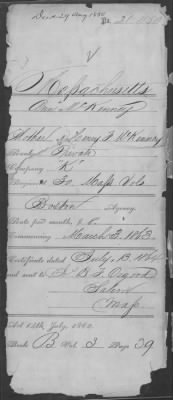 Died 29 Aug 1880
Massachusetts
Mc Kenney
Mother of Henry F. McKenney
Rank, Private
Company "K"
Regiment 50 Mass Vols
Boston Agency.
Rate per month, $ 8
Commencing March 3, 1863
Certificate dated July 13, 1864
and sent to B. F. Osgood
Salem
Mass.
Act 14th July, 1862.
Book B Vol. 3 Page 29